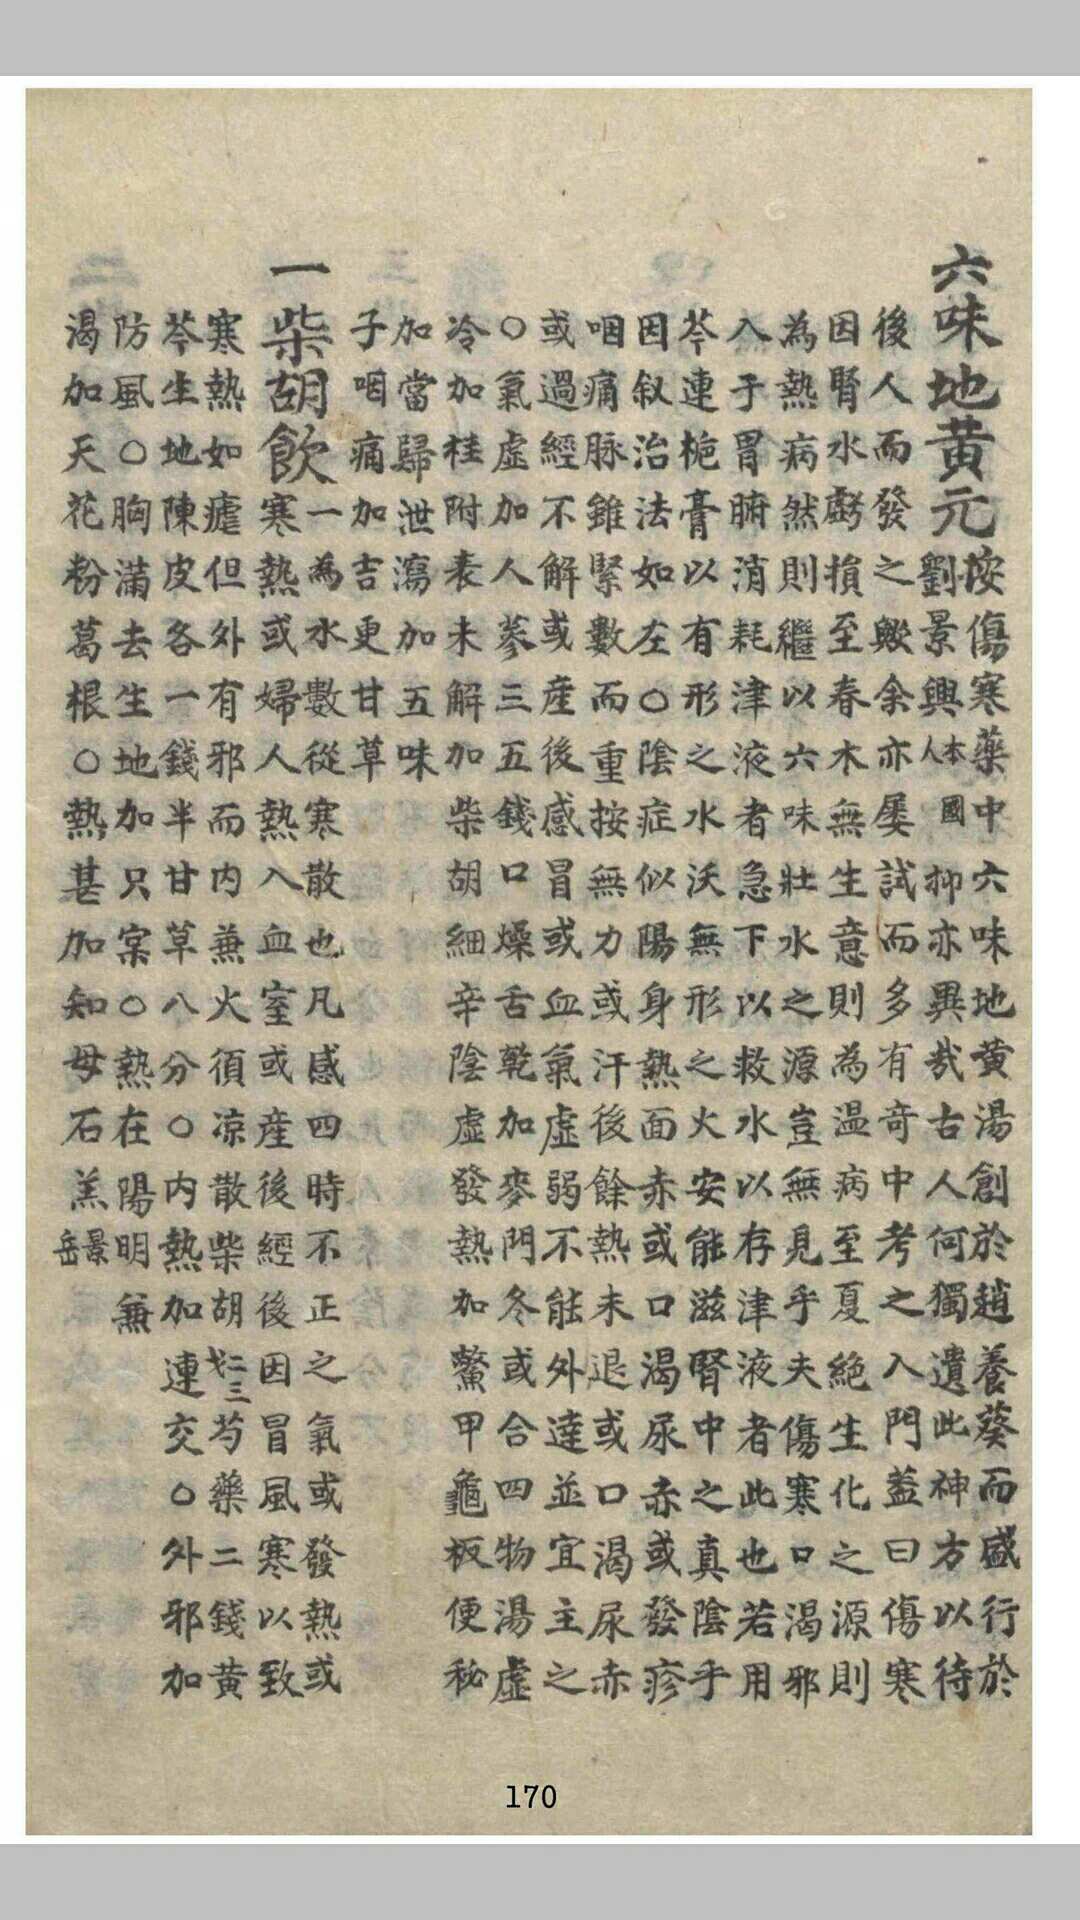 六味地黄元按傷寒藥中六味地黄湯創於趙養葵而盛行於
劉景興本國人抑亦異哉古人何獨遺此神方以待
後人而發之歟余亦屡試而多有奇中考之入門盖曰傷寒
因腎水虧損至春木無生意則為温病至夏絶生化之源則
為熱病然則繼以六味壯水之源豈無見乎夫傷寒口渴邪
入于胃腑消耗津液者急下以救水以存津液者此也若用
芩連栀膏以有形之水沃無形之火安能滋腎中之真陰乎
因叙治法如左○陰症似陽身熱面赤或口渴尿赤或發疹
咽痛脉雖緊數而重按無力或汗後餘熱未退或口渴尿赤
或過經不解或産後感冒或血氣虚弱不能外達並宜主之
○氣虚加人蔘三五錢口燥舌乾加麥門冬或合四物湯虚
冷加桂附表未解加柴胡細辛陰虚發熱加鱉甲龜板便秘
加當歸泄瀉加五味
子咽痛加吉更甘草
一柴胡飮一為水數從寒散也凡感四時不正之氣或發熱或
寒熱或婦人熱入血室或産後經後因冒風寒以致
寒熱如瘧但外有邪而内兼火須凉散柴胡二三戈芍藥二錢黄
芩生地陳皮各一錢半甘草八分○内熱加連交○外邪加
防風○胸滿去生地加只宲○熱在陽明兼
渴加天花粉葛根○熱甚加知母石羔景岳
170